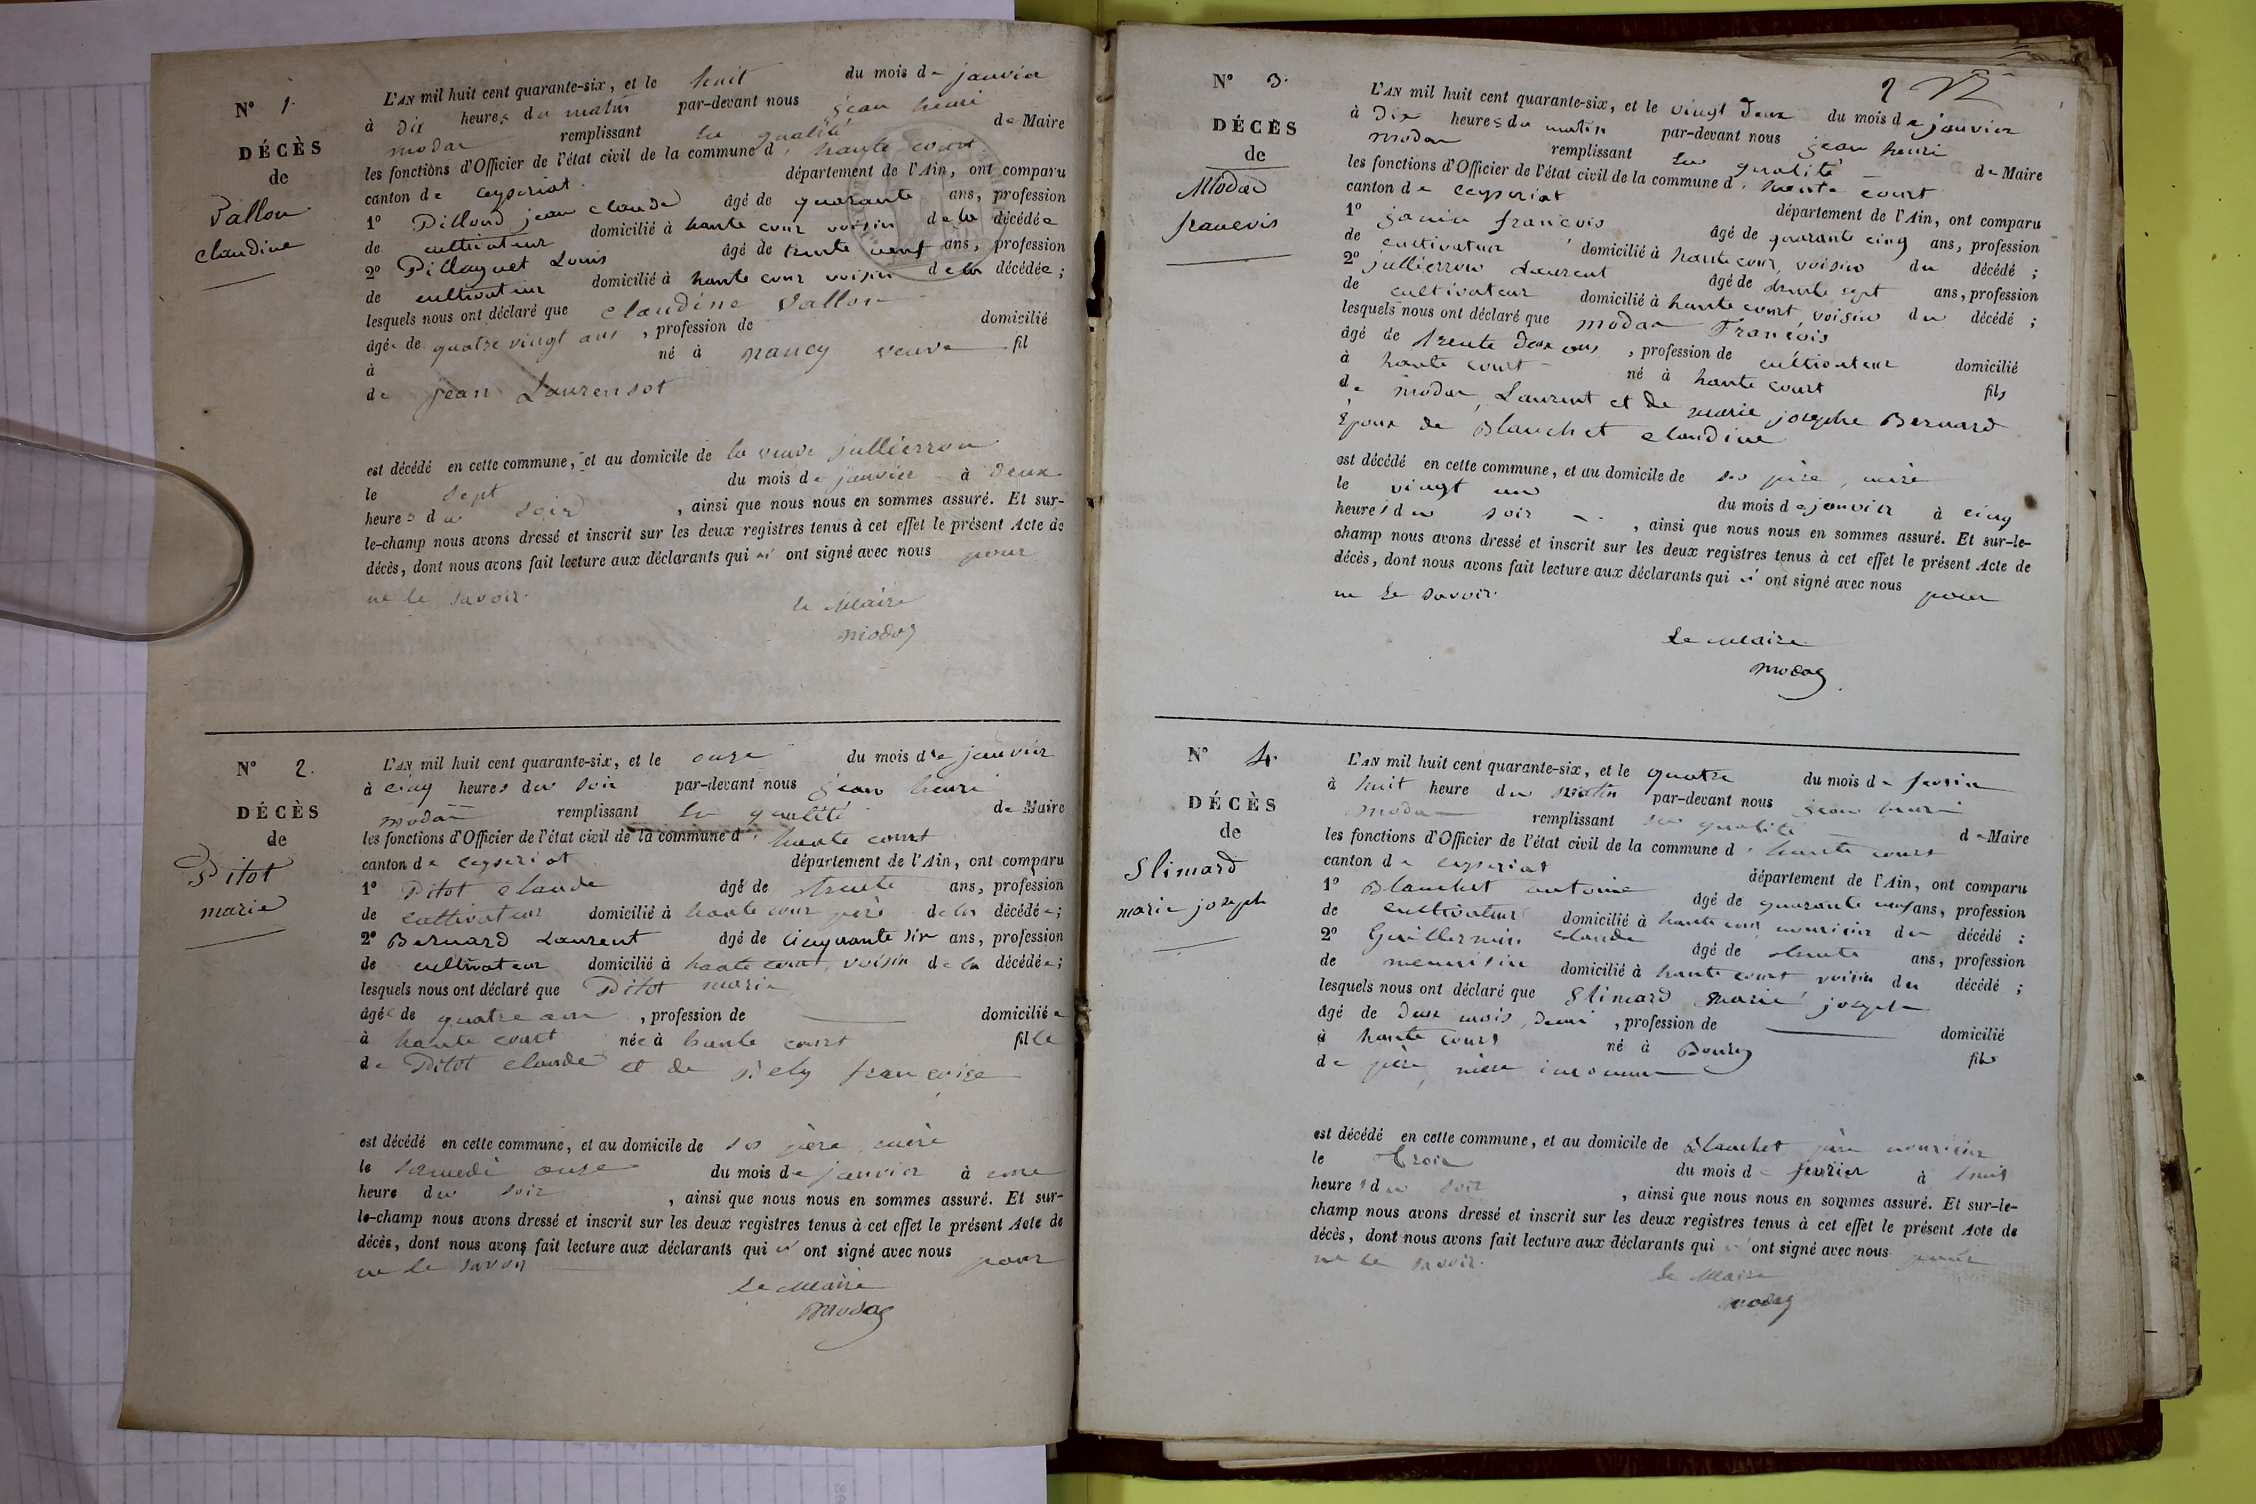 N° 1.
DÉCÈS
de
Vallon
claudine
L'AN mil huit cent quarante-six, et le huit du mois de janvier
à dix heures du matin par-devant nous jean henri
modas remplissant la qualité de Maire
les fonctions d'Officier de l'état civil de la commune d' haute court
canton de ceyseriat département de l'Ain, ont comparu
1° Pilloud jean claude âgé de quarante ans, profession
de cultivateur domicilié à haute cour voisin de la décédée
2° Pillaguet Louis âgé de trente neuf ans, profession
de cultivateur domicilié à haute cour voisin de la décédée ;
lesquels nous ont déclaré que claudine Vallon
âgée de quatre vingt ans , profession de domicilié
à né à nancy veuve fil
de jean Laurensot
est décédé en cette commune, et au domicile de la veuve jullierron
le sept du mois de janvier à deux
heures du soir , ainsi que nous nous en sommes assuré. Et sur-
le-champ nous avons dressé et inscrit sur les deux registres tenus à cet effet le présent Acte de
décès, dont nous avons fait lecture aux déclarants qui n' ont signé avec nous pour
ne le savoir.
le Maire
modas
N° 2.
DÉCÈS
de
Pitot
marie
L'AN mil huit cent quarante-six, et le onze du mois de janvier
à cinq heures du soir par-devant nous jean henri
modas remplissant la qualité de Maire
les fonctions d'Officier de l'état civil de la commune d' haute court
canton de ceyseriat département de l'Ain, ont comparu
1° Pitot claude âgé de trente ans, profession
de cultivateur domicilié à haute cour père de la décédée ;
2° Bernard Laurent âgé de cinquante six ans, profession
de cultivateur domicilié à haute court, voisin de la décédée ;
lesquels nous ont déclaré que Pitot marie
âgée de quatre ans , profession de domiciliée
à haute court née à haute court fille
de Pitot claude et de françoise
est décédé en cette commune, et au domicile de ses père, mère
le samedi onze du mois de janvier à une
heure du soir , ainsi que nous nous en sommes assuré. Et sur-
le-champ nous avons dressé et inscrit sur les deux registres tenus à cet effet le présent Acte de
décès, dont nous avons fait lecture aux déclarants qui n' ont signé avec nous pour
ne le savoir
le Maire
modas
2
N° 3.
DÉCÈS
de
Modas
francois
L'AN mil huit cent quarante-six, et le vingt deux du mois de janvier
à dix heures du matin par-devant nous jean henri
modas remplissant la qualité de Maire
les fonctions d'Officier de l'état civil de la commune d' haute court
canton de ceyseriat département de l'Ain, ont comparu
1° janin françois âgé de quarante cinq ans, profession
de cultivateur domicilié à haute cour, voisin du décédé ;
2° jullierron Laurent âgé de trente sept ans, profession
de cultivateur domicilié à haute court voisin du décédé ;
lesquels nous ont déclaré que modas François
âgé de trente deux ans , profession de cultivateur domicilié
à haute court né à haute court fils
de modas, Laurent et de marie josephe Bernard
Epoux de Blanchet claudine
est décédé en cette commune, et au domicile de ses père, mère
le vingt un du mois de janvier à cinq
heures du soir , ainsi que nous nous en sommes assuré. Et sur-le-
champ nous avons dressé et inscrit sur les deux registres tenus à cet effet le présent Acte de
décès, dont nous avons fait lecture aux déclarants qui n' ont signé avec nous pour
ne le savoir.
Le Maire
modas
N° 4.
DÉCÈS
de
Slimard
marie joseph
L'AN mil huit cent quarante-six, et le quatre du mois de fevrier
à huit heure du matin par-devant nous jean henri
modas remplissant la qualité de Maire
les fonctions d'Officier de l'état civil de la commune d' haute court
canton de ceyseriat département de l'Ain, ont comparu
1° Blanchet antoine âgé de quarante neuf ans, profession
de cultivateur domicilié à haute cour nouricier du décédé ;
2° Guillermin claude âgé de trente ans, profession
de menuisier domicilié à haute court voisin du décédé ;
lesquels nous ont déclaré que Slimard marie joseph
âgé de deux mois, demi , profession de domicilié
à haute court né à Bourg fils
de père, mère inconnu
est décédé en cette commune, et au domicile de Blanchet père nouricier
le trois du mois de fevrier à huit
heures du soir , ainsi que nous nous en sommes assuré. Et sur-le-
champ nous avons dressé et inscrit sur les deux registres tenus à cet effet le présent Acte de
décès, dont nous avons fait lecture aux déclarants qui n' ont signé avec nous pour
ne le savoir.
le Maire
modas